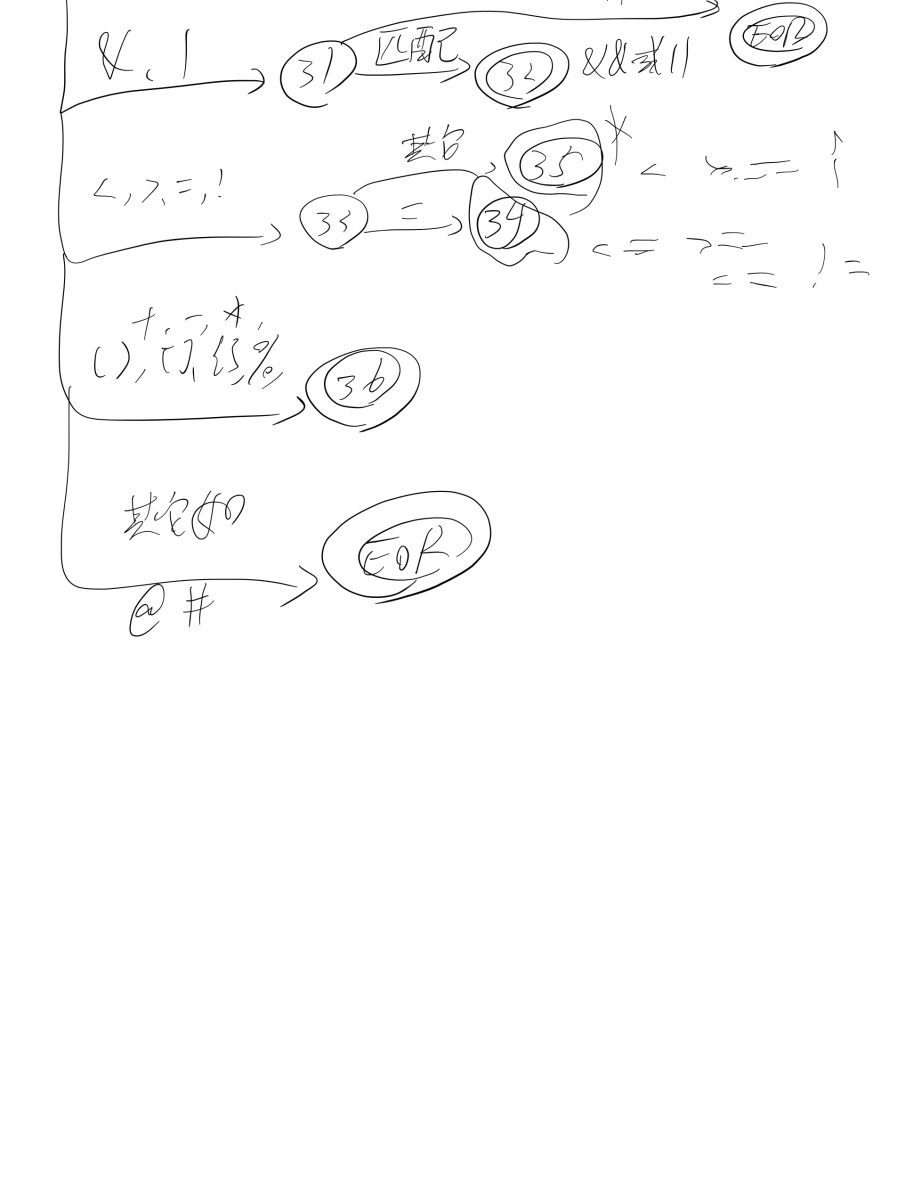 &、| 31 匹配 32 &&或|| EOR
<,>,=,! 33 其它 35 * < > = !
= 34 <= >=
== !=
+,-,*,
(),[],{},%, 36
其它如 EOR
@ #